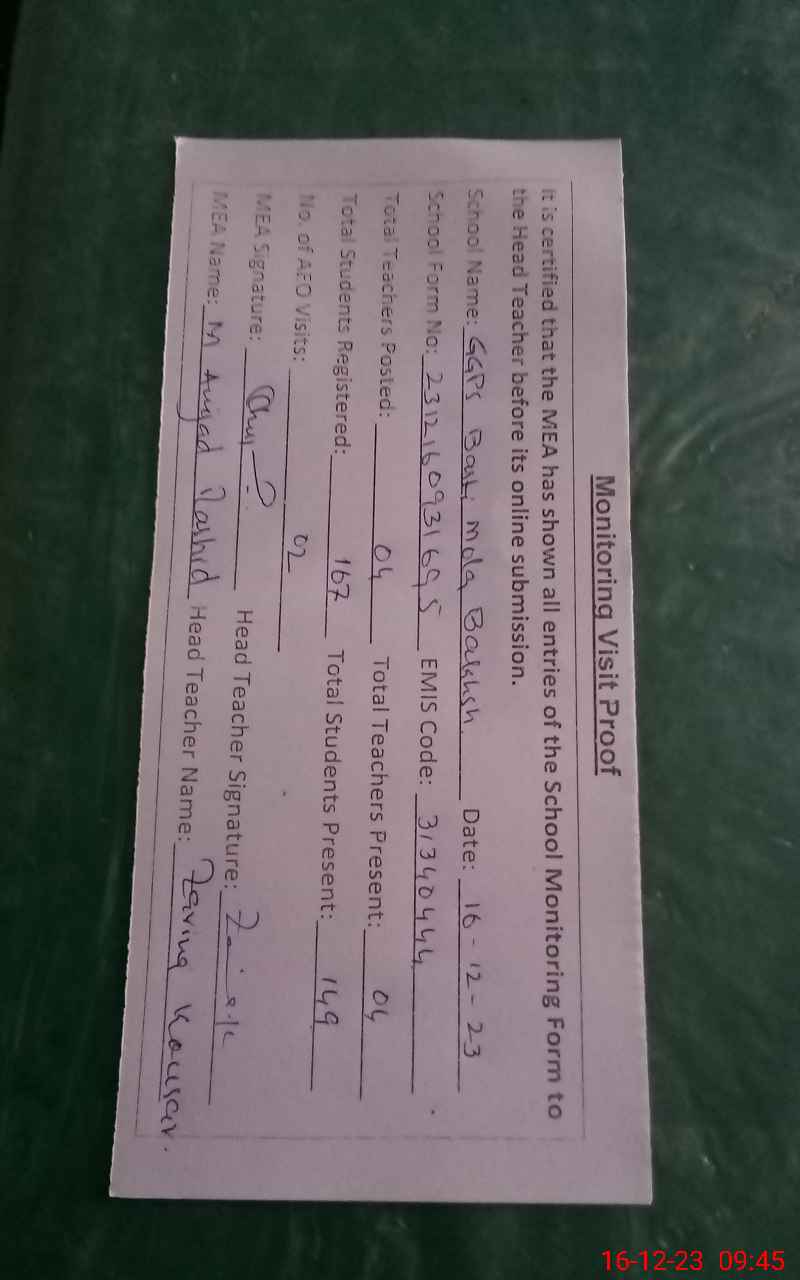 Monitoring Visit Proof
It is certified that the MEA has shown all entries of the School Monitoring Form to
the Head Teacher before its online submission.
School Name: GGPS Basti Mola Bakhsh Date: 16-12-23
School Form No: 2312160931695 EMIS Code: 31340444
Total Teachers Posted: 04 Total Teachers Present: 04
Total Students Registered: 167 Total Students Present: 149
No. of AEO Visits: 02
MEA Signature: Head Teacher Signature:
MEA Name: M Amjad Rashid Head Teacher Name: Zarina Kousar.
16-12-23 09:45